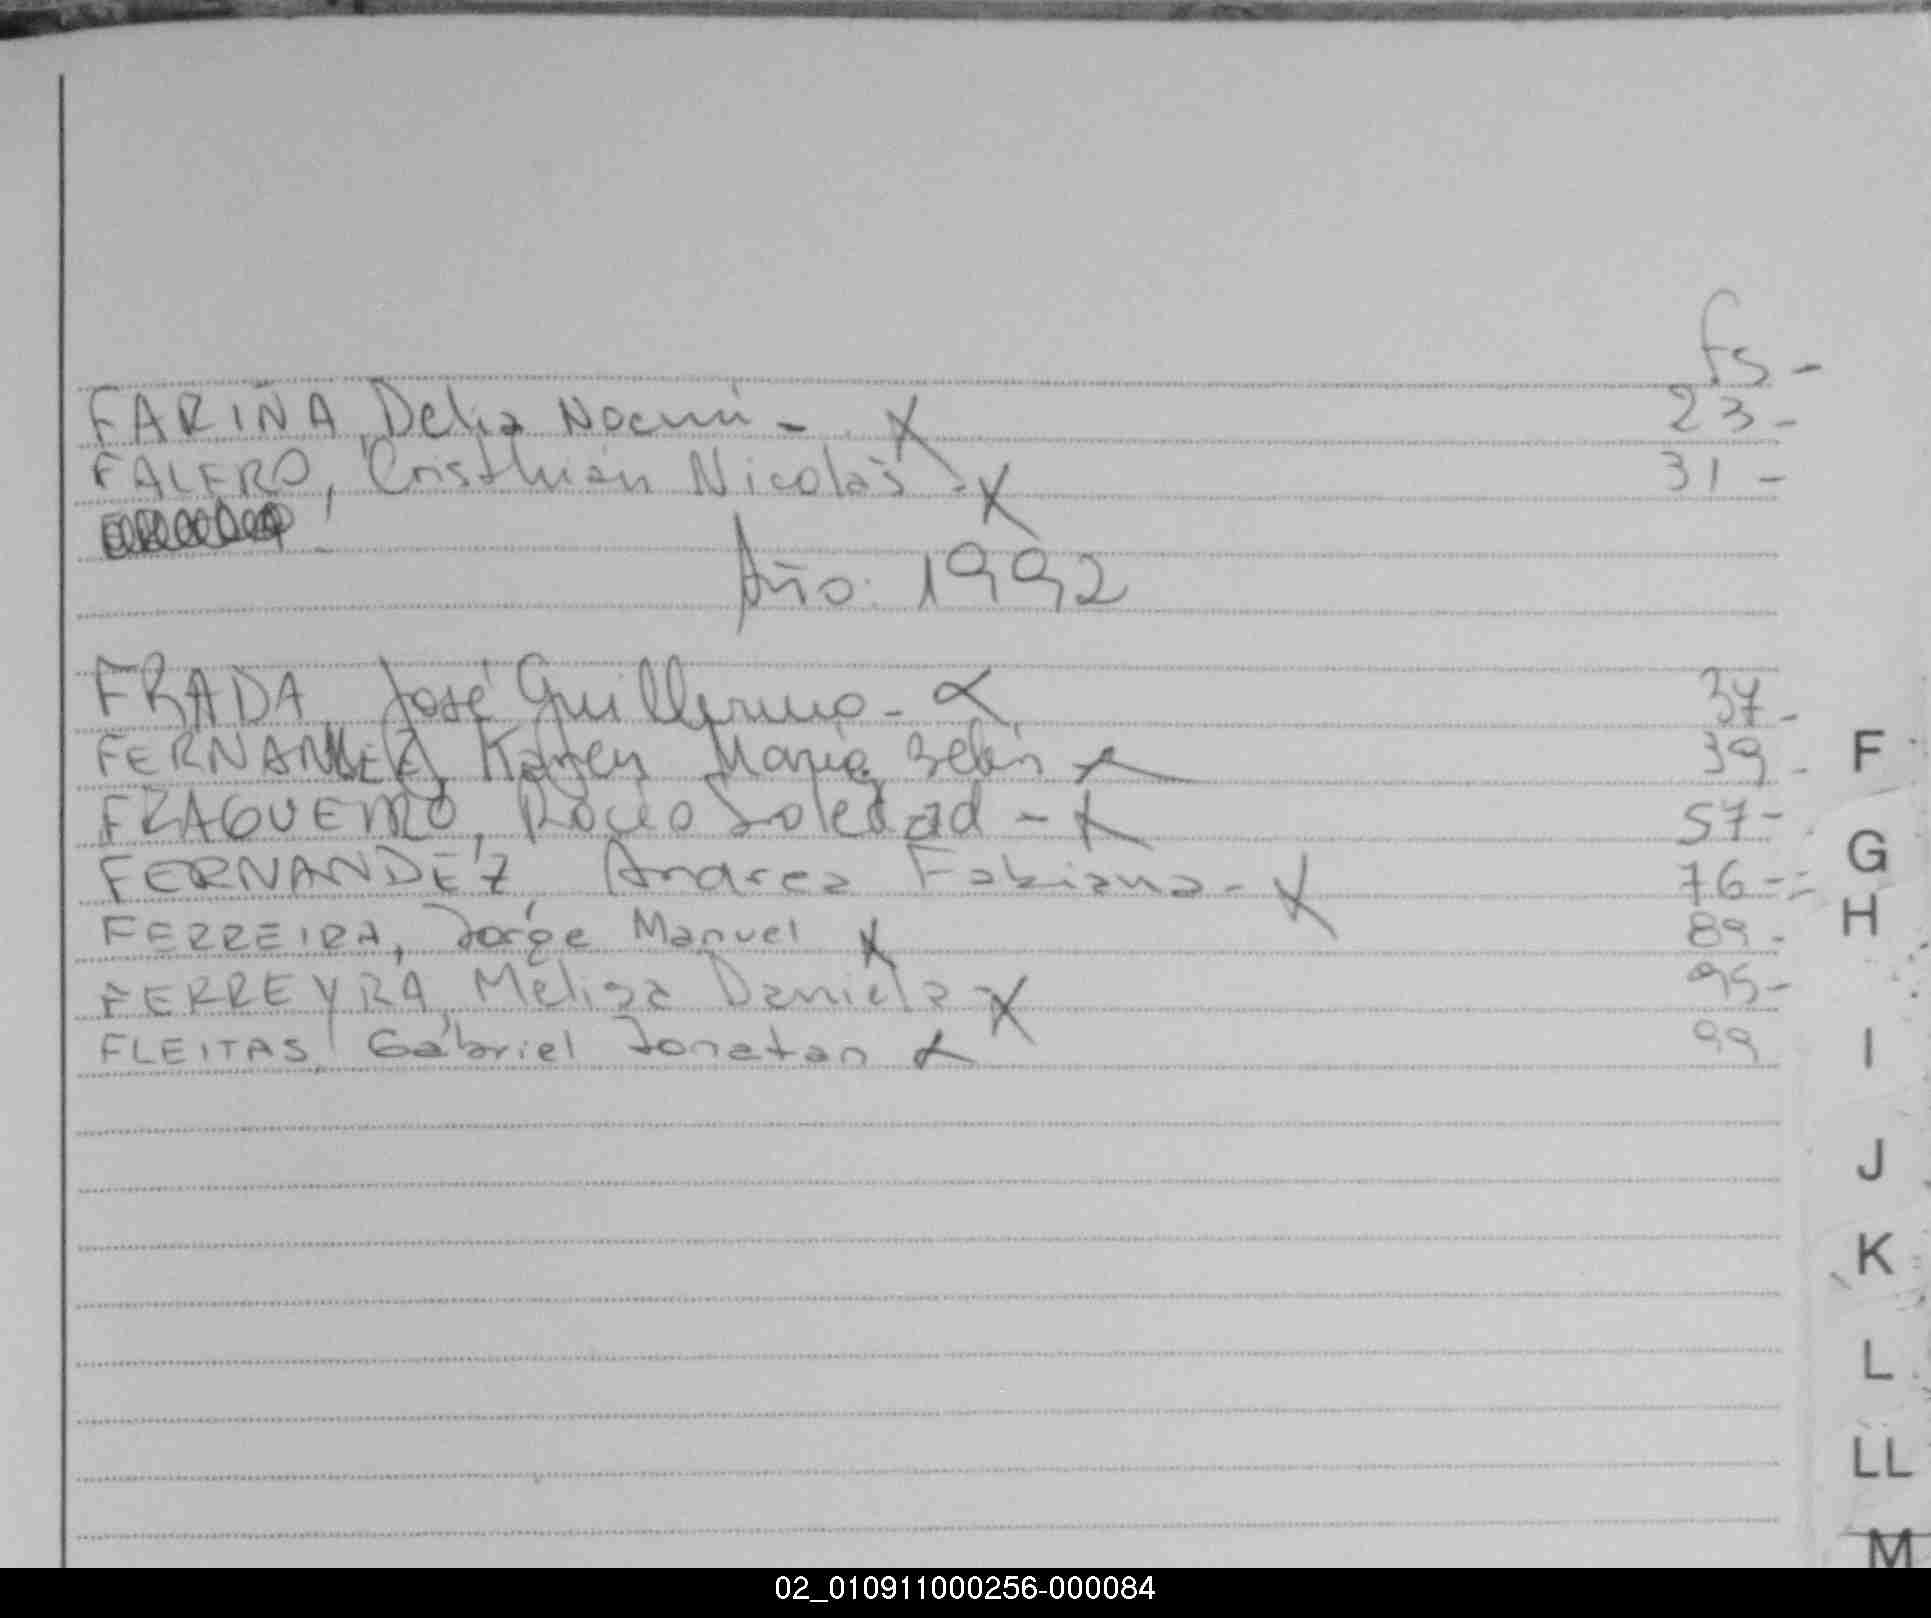 fs -
FARIÑA, Delia Noemí - X 23 -
FALERO, Cristhian Nicolás - X 31 -
Año: 1992
FRADA, José Guillermo - X 37 -
FERNANDEZ, Karen María Belén X 39 -
FRAGUEIRO, Rocío Soledad - X 57 -
FERNANDEZ Andrea Fabiana - X 76 -
FERREIRA, Jorge Manuel X 89 -
FERREYRA, Melisa Daniela - X 95 -
FLEITAS, Gabriel Jonatan X 99
F
G
H
I
J
K
L
LL
M
02_010911000256-000084